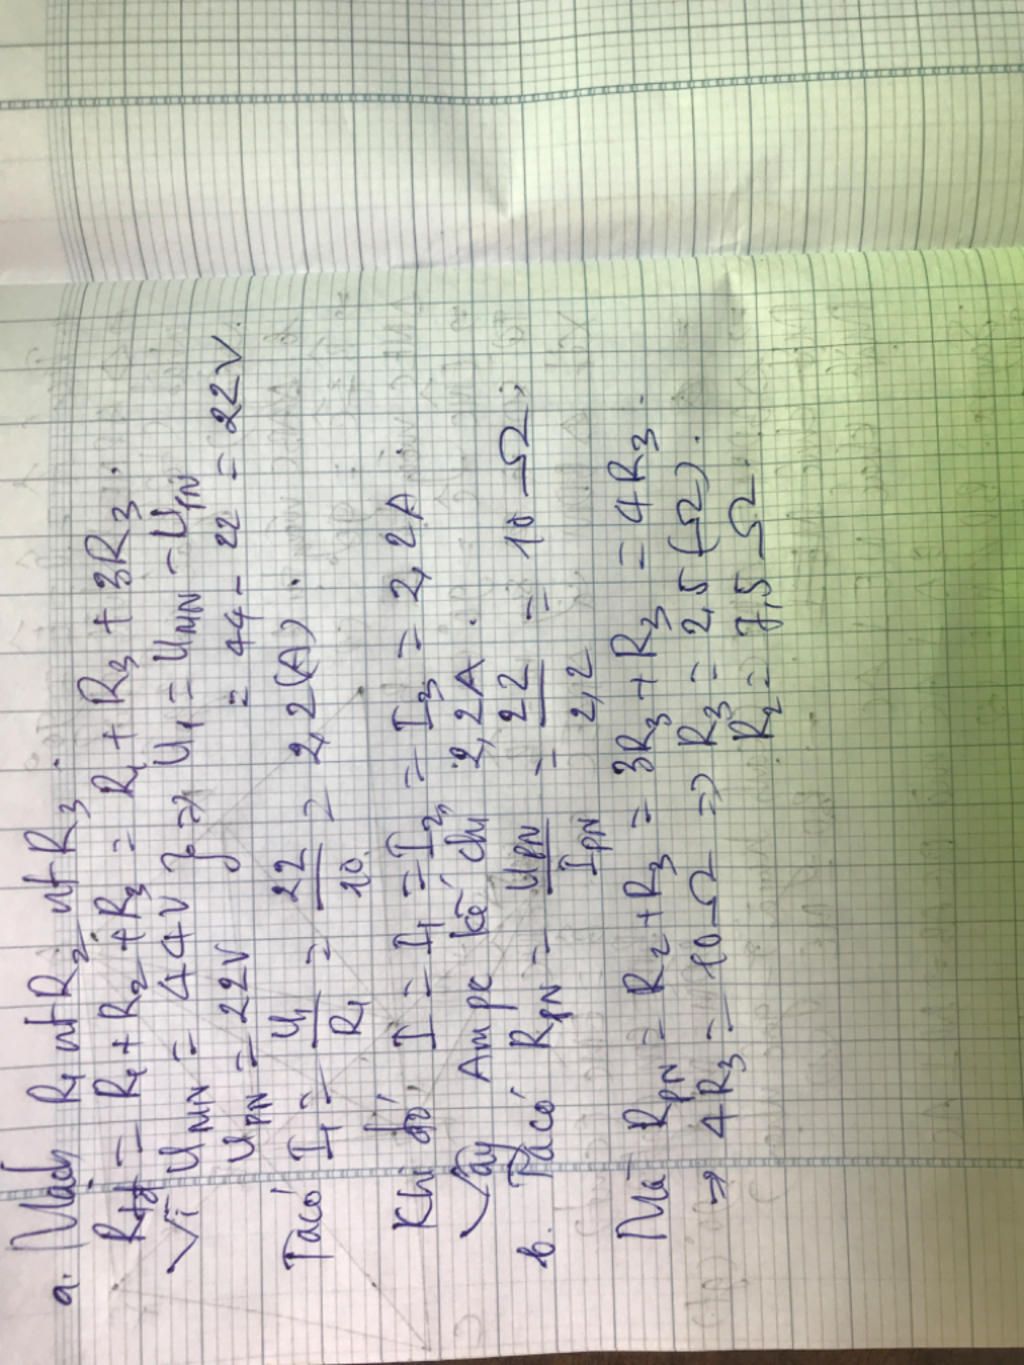 a. Mạch R₁ nt R₂ nt R₃.
Rtđ = R₁ + R₂ + R₃ = R₁ + R₃ + 3R₃.
Vì U_MN = 44V } => U₁ = U_MN - U_PN
U_PN = 22V = 44 - 22 = 22V.
Ta có I₁ = U₁/R₁ = 22/10 = 2,2(A).
Khi đó, I = I₁ = I₂ = I₃ = 2,2A.
Vậy Ampe kế chỉ 2,2A.
b. Ta có R_PN = U_PN/I_PN = 22/2,2 = 10Ω.
Mà R_PN = R₂ + R₃ = 3R₃ + R₃ = 4R₃.
=> 4R₃ = 10Ω => R₃ = 2,5(Ω).
R₂ = 7,5Ω.